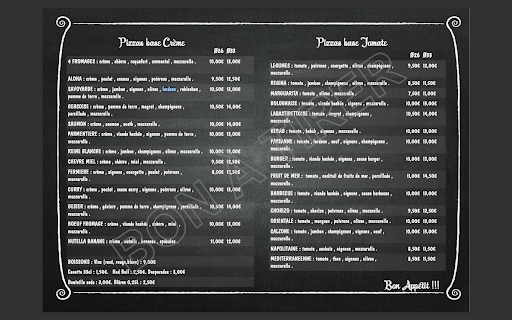 Pizzas base Crème
Ø26 Ø33
4 FROMAGES : crème , chèvre , roquefort , emmental , mozzarella . 10,00€ 13,00€
ALOHA : crème , poulet , ananas , oignons , poivrons , mozzarella . 9,50€ 12,50€
SAVOYARDE : crème , jambon , oignons , olives , lardons , reblochon , 10,00€ 13,00€
pomme de terre , mozzarella .
GERSOISE : crème , pomme de terre , magret , champignons , 10,50€ 14,00€
persillade , mozzarella .
SAUMON : crème , saumon , aneth , mozzarella . 10,50€ 14,00€
PARMENTIERE : crème , viande hachée , oignons , pomme de terre , 10,00€ 13,00€
mozzarella .
REINE BLANCHE : crème , jambon , champignons , olives , mozzarella . 10,00€ 13,00€
CHEVRE MIEL : crème , chèvre , miel , mozzarella . 9,50€ 12,50€
FERMIERE : crème , oignons , courgette , poulet , poivrons , 8,50€ 11,50€
mozzarella .
CURRY : crème , poulet , sauce curry , oignons , poivrons , olives , 10,00€ 13,00€
mozzarella .
persillade , mozzarella .
BOEUF FROMAGE : crème , viande hachée , chèvre , miel , 10,00€ 13,00€
mozzarella .
NUTELLA BANANE : crème , nutella , bananes , spéculos . 11,00€ 12,00€
BOISSONS : Vins (rosé, rouge,blanc) : 9,00€
Canette 33cl : 1,50€. Red Bull : 2,50€. Desperados : 3,00€.
Bouteille soda : 3,00€. Bières 0,25L : 2,50€.
Pizzas base Tomate
Ø26 Ø33
LEGUMES : tomate , poivrons , courgette , olives , champignons , 9,50€ 12,50€
mozzarella .
REGINA : tomate , jambon , champignons , olives , mozzarella . 8,50€ 11,50€
MARGUARITA : tomate , olives , mozzarella . 7,50€ 10,50€
BOLOGNAISE : tomate , viande hachée , oignons , mozzarella . 10,00€ 13,00€
LABASTIDETTOISE : tomate , magret , champignons , 10,50€ 14,00€
mozzarella .
KEBAB : tomate , kebab , oignons , mozzarella . 10,00€ 13,00€
PAYSANNE : tomate , lardons , oeuf , oignons , champignons , 10,00€ 13,00€
mozzarella .
BURGER : tomate , viande hachée , oignons , sauce burger , 10,00€ 13,00€
mozzarella .
FRUIT DE MER : tomate , cocktail de fruits de mer , persillade , 10,00€ 13,00€
mozzarella .
BARBECUE : tomate , viande hachée , oignons , sauce barbecue , 10,00€ 13,00€
mozzarella .
CHORIZO : tomate , chorizo , poivrons , olives , mozzarella . 9,50€ 12,50€
ORIENTALE : tomate , merguez , poivrons , olives , mozzarella . 10,00€ 13,00€
CALZONE : tomate , jambon , champignons , oignons , oeuf , 10,00€ 13,00€
mozzarella .
NAPOLITAINE : tomate , anchois , oignons , mozzarella . 8,50€ 11,50€
MEDITERRANEENNE : tomate , thon , oignons , olives , 8,50€ 11,50€
mozzarella .
Bon Appétit !!!